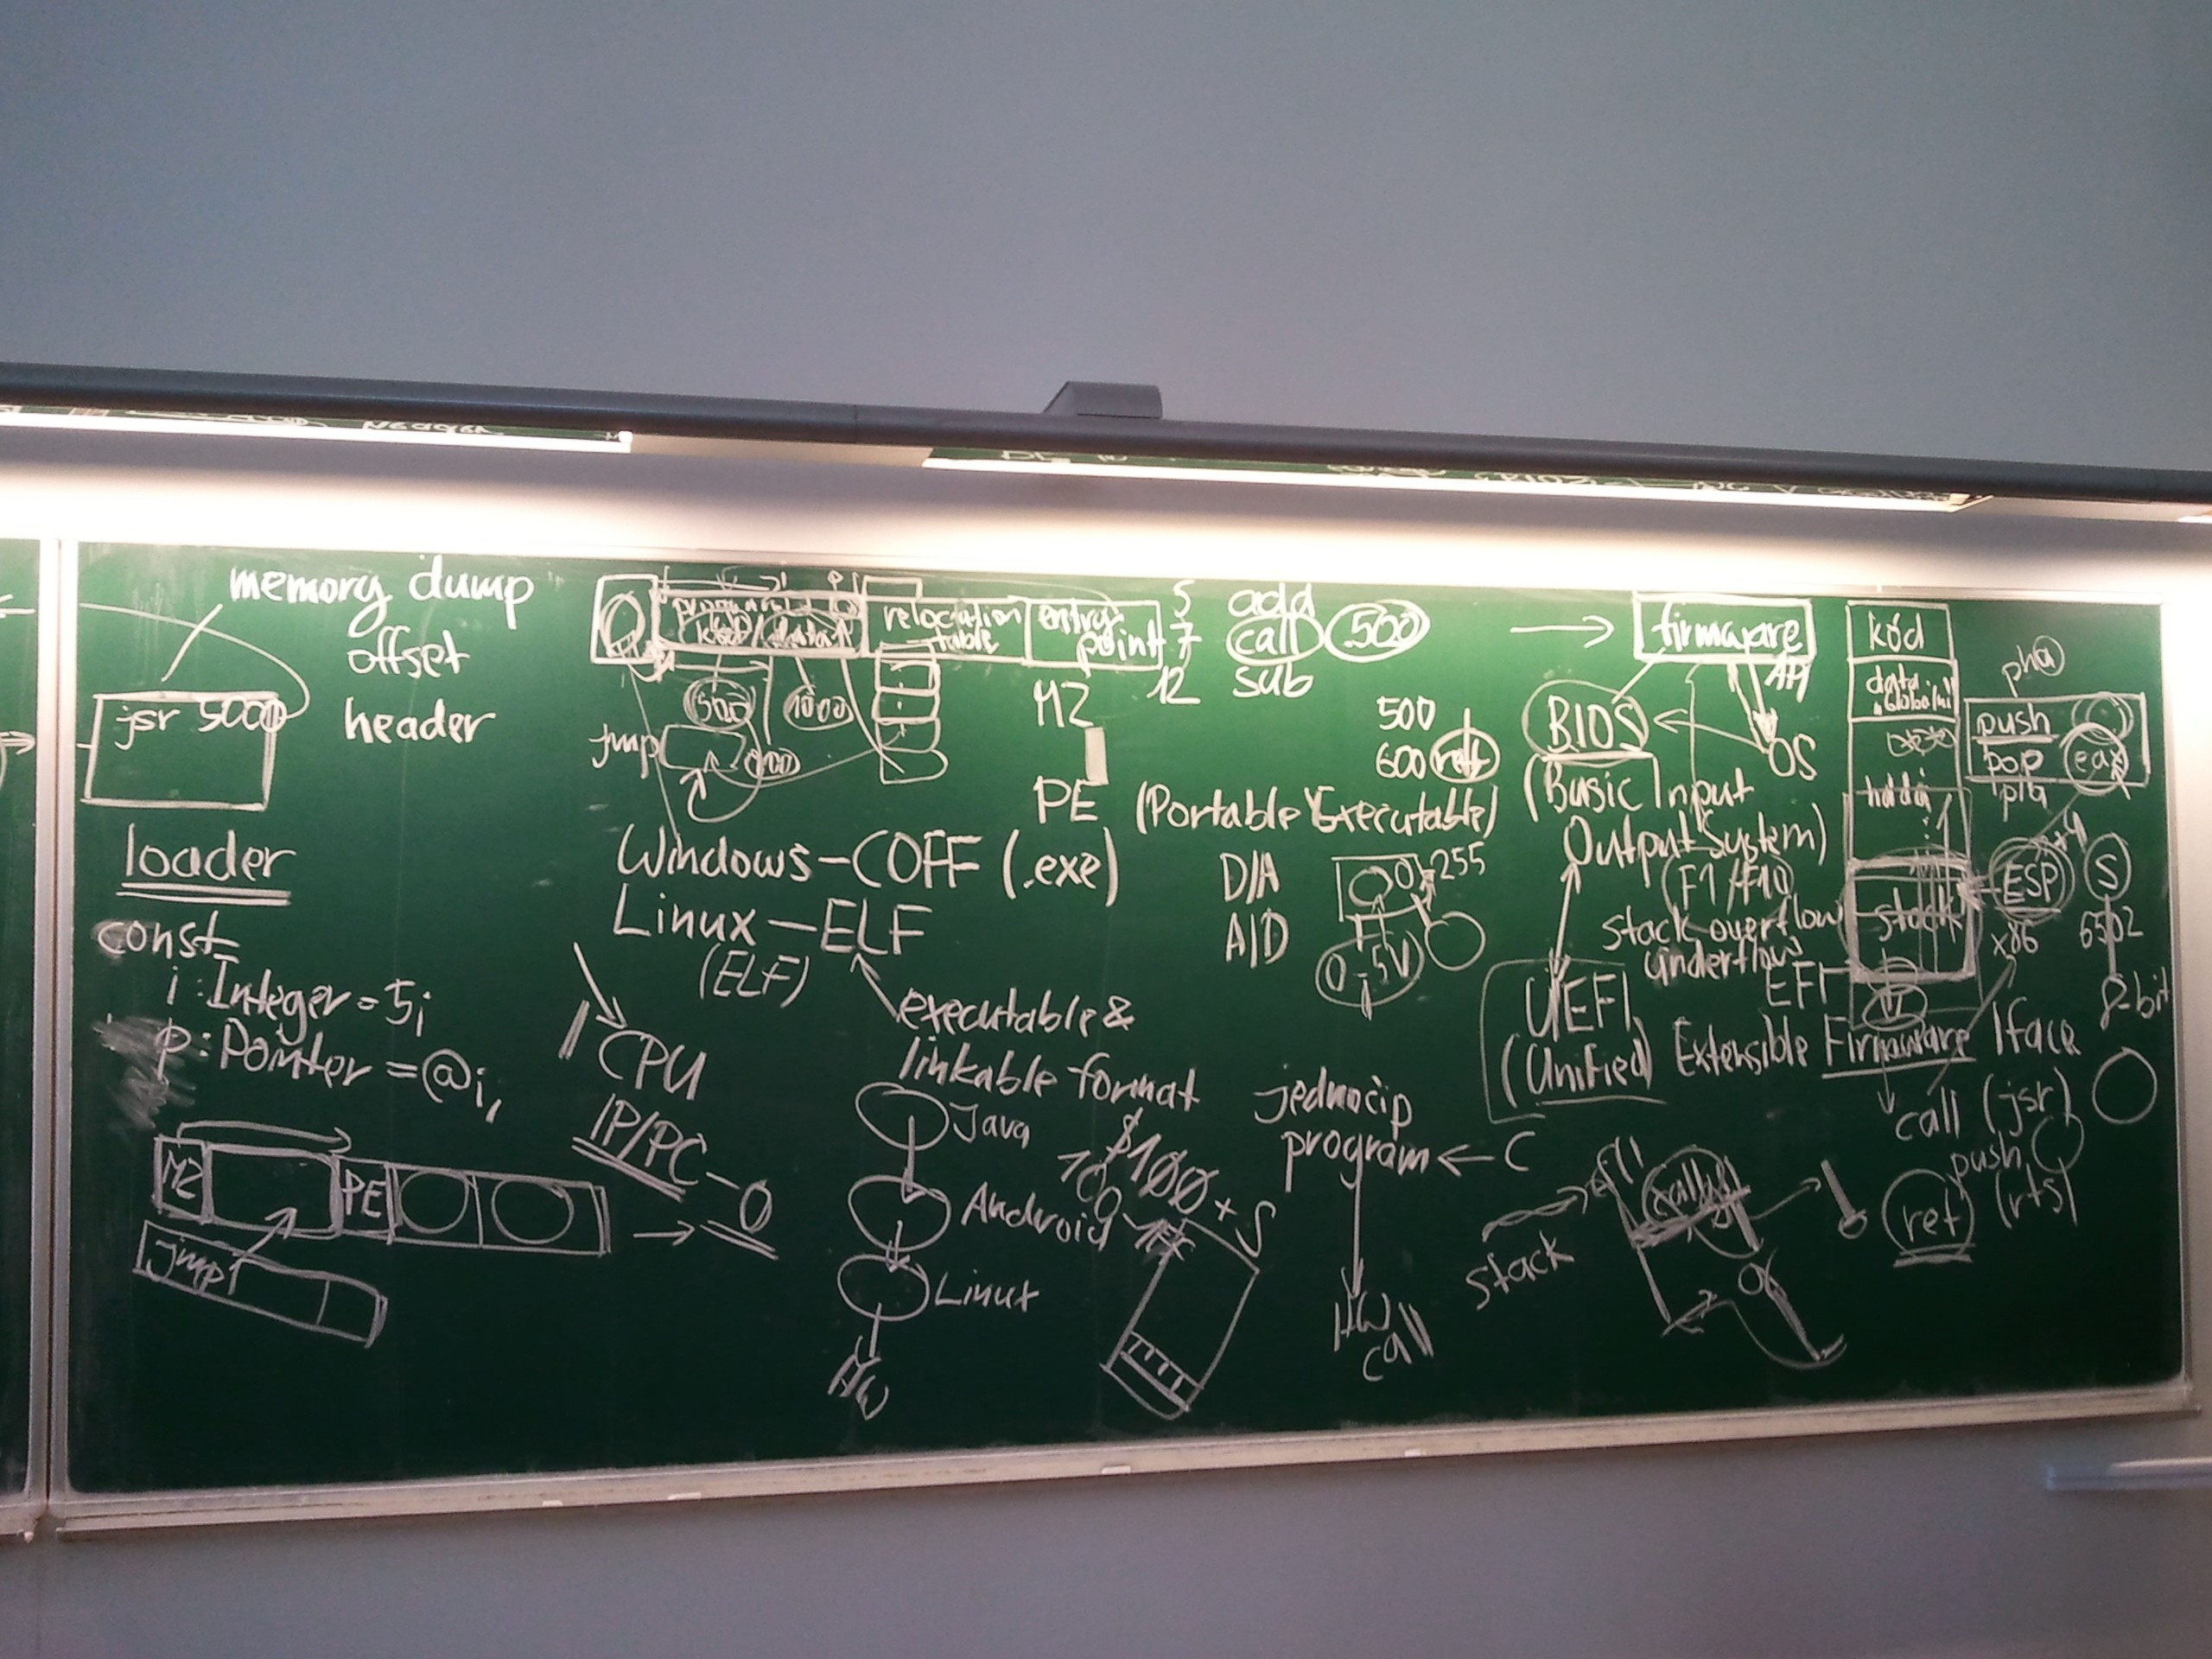 memory dump
offset
header
jsr 5000
loader
const
i : Integer = 5;
p : Pointer = @i;
MZ
PE
jmp
relocation
table
entry
point
500
1000
jmp
MZ
PE (Portable Executable)
Windows - COFF (.exe)
Linux - ELF
(ELF)
executable &
linkable format
CPU
IP/PC - 0
Java
Android
Linux
HW
5 add
7 call 500
12 sub
500
600 ret
D/A
A/D
0-255
0-5V
jednočip
program ← C
HW
call
$100 + S
firmware
API
OS
BIOS
(Basic Input
Output System)
F1/F10
stack overflow
underflow
EFI
UEFI
(Unified) Extensible Firmware Iface
kód
data
halda
stack
pha
push
pop eax
pla
ESP
+4
x86
S
6502
8-bit
call (jsr)
push
ret (rts)
stack